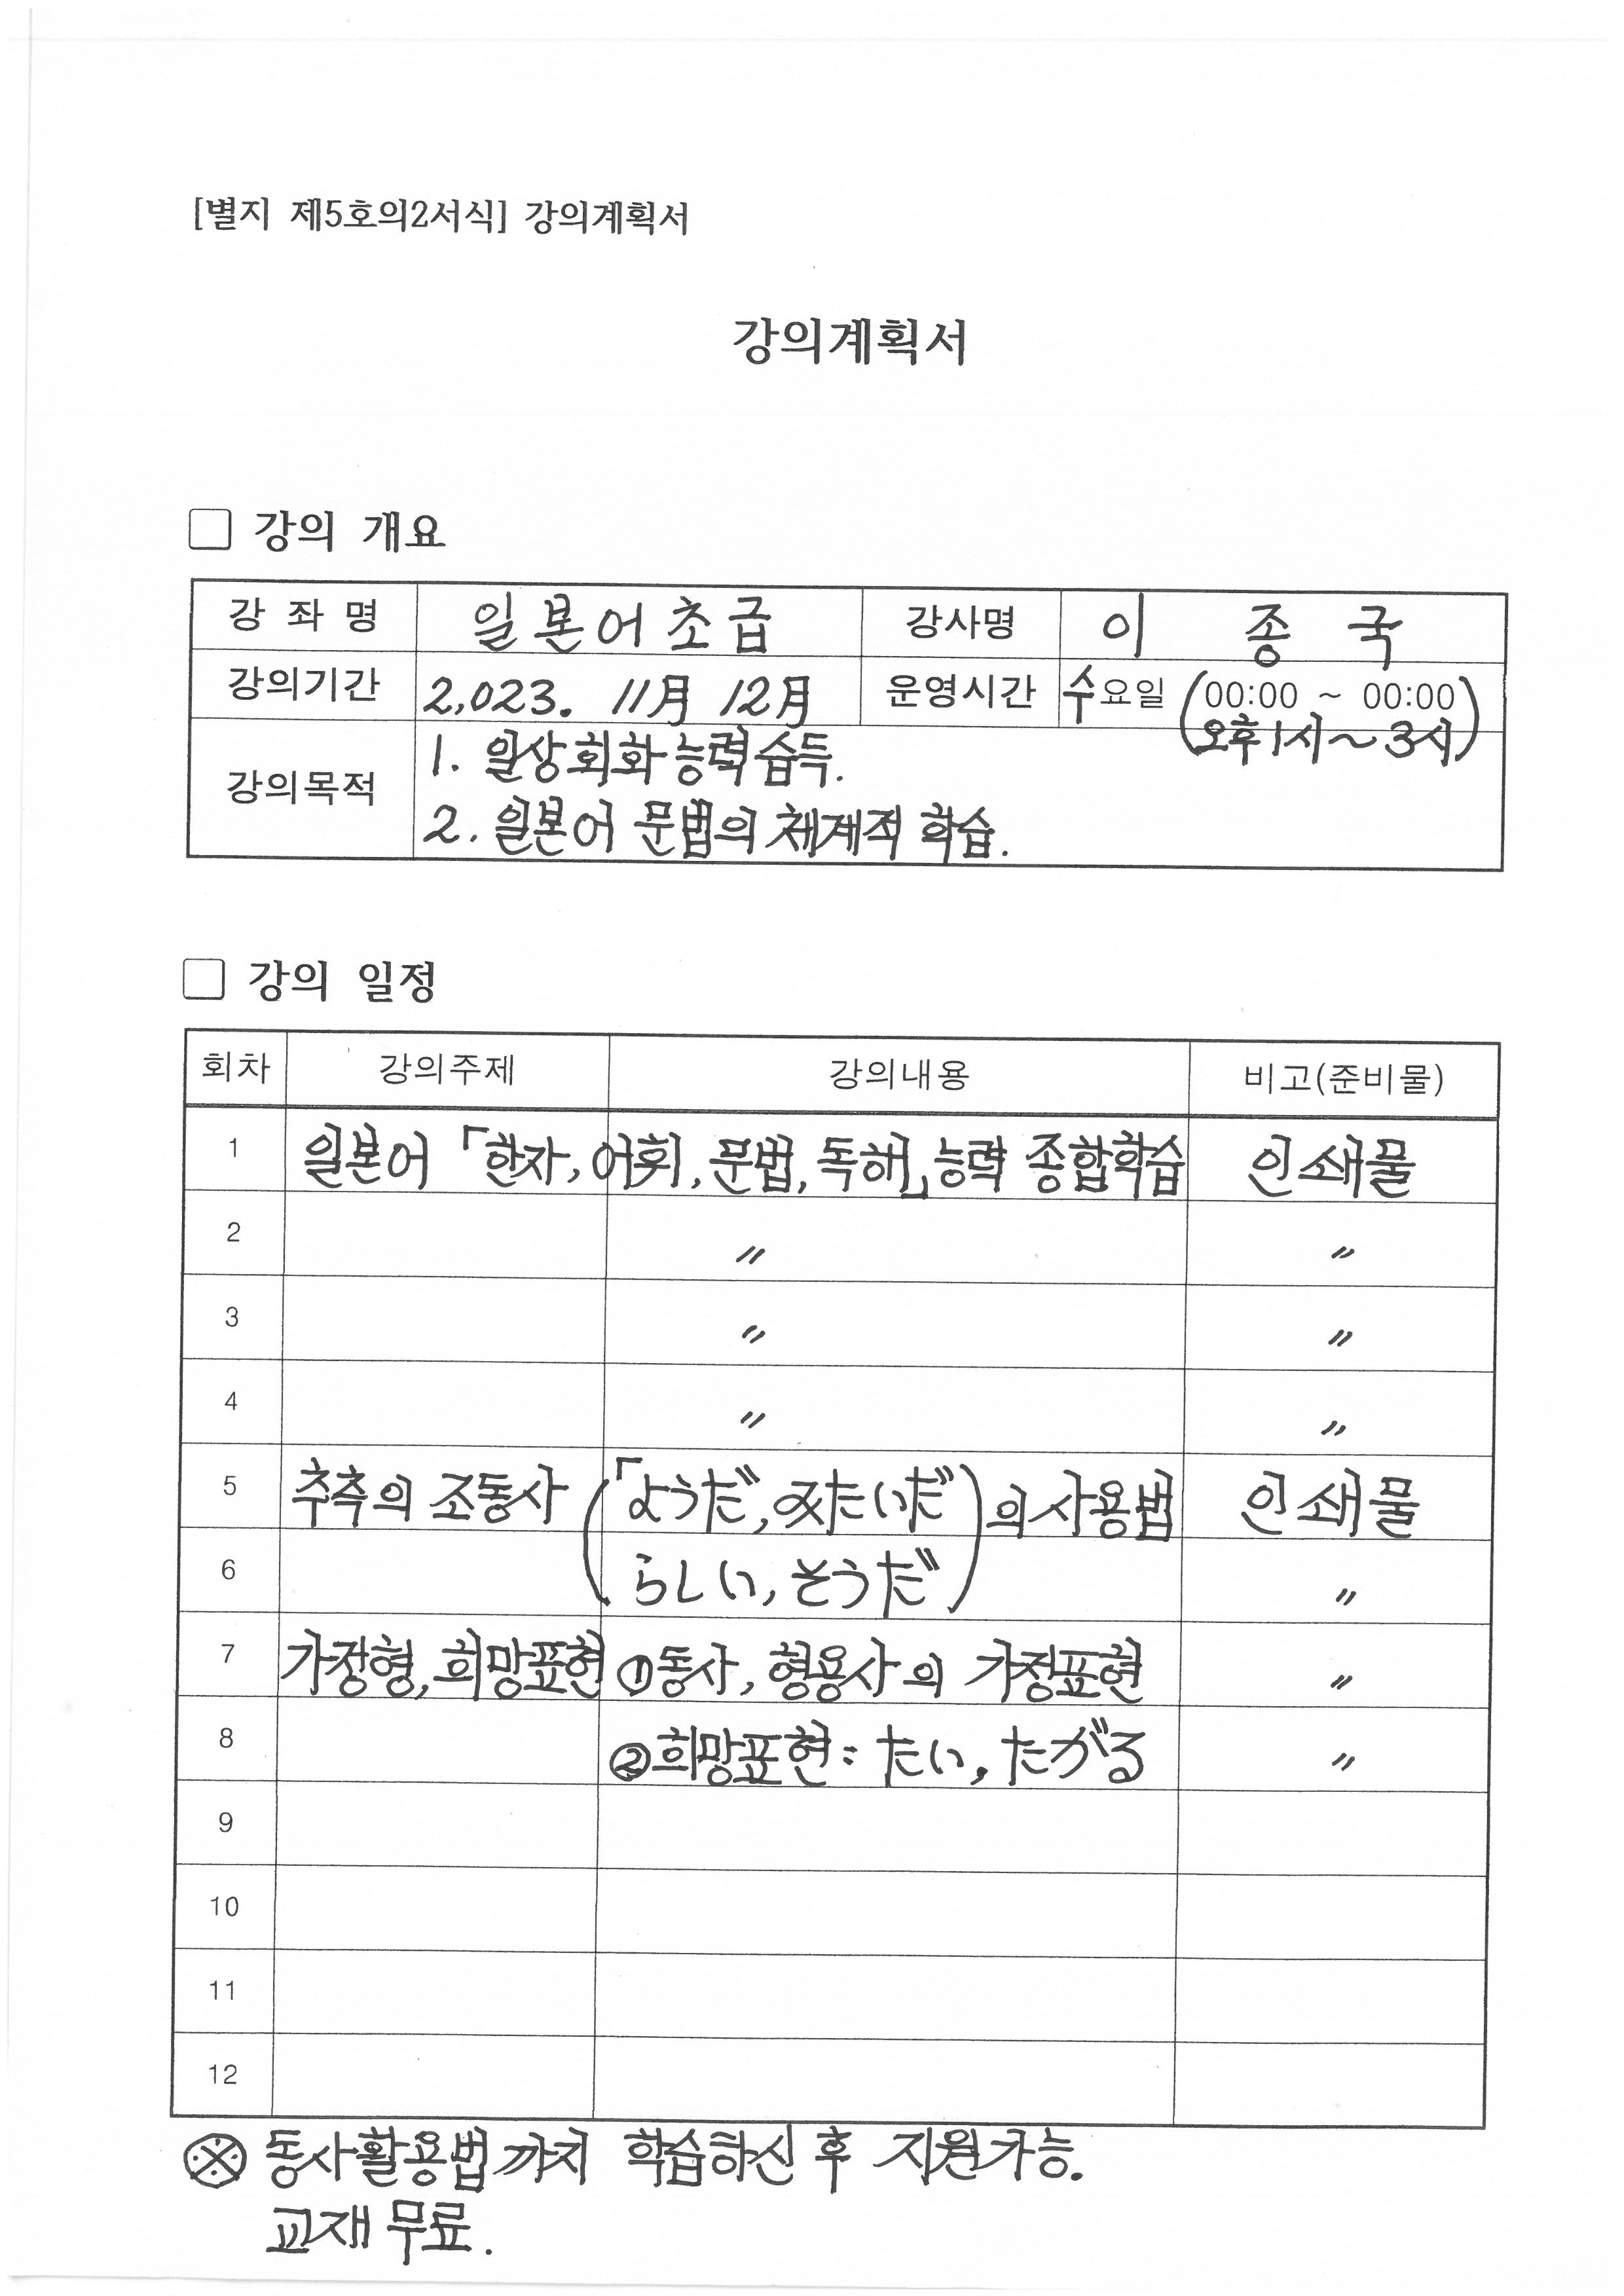 [별지 제5호의2서식] 강의계획서
강의계획서
□ 강의 개요
강 좌 명 일본어초급 강사명 이 종 국
강의기간 2,023. 11月 12月 운영시간 수요일 (00:00 ~ 00:00)
(오후1시~3시)
강의목적 1. 일상회화능력습득.
2. 일본어 문법의 체계적 학습.
□ 강의 일정
회차 강의주제 강의내용 비고(준비물)
1 일본어 「한자, 어휘, 문법, 독해」능력 종합학습 인쇄물
2 〃 〃
3 〃 〃
4 〃 〃
5 추측의 조동사 (「ようだ, みたいだ) 의 사용법 인쇄물
6 (らしい, そうだ) 〃
7 가정형, 희망표현 ①동사, 형용사의 가정표현 〃
8 ②희망표현: たい, たがる 〃
9
10
11
12
※ 동사활용법까지 학습하신 후 지원가능.
교재 무료.